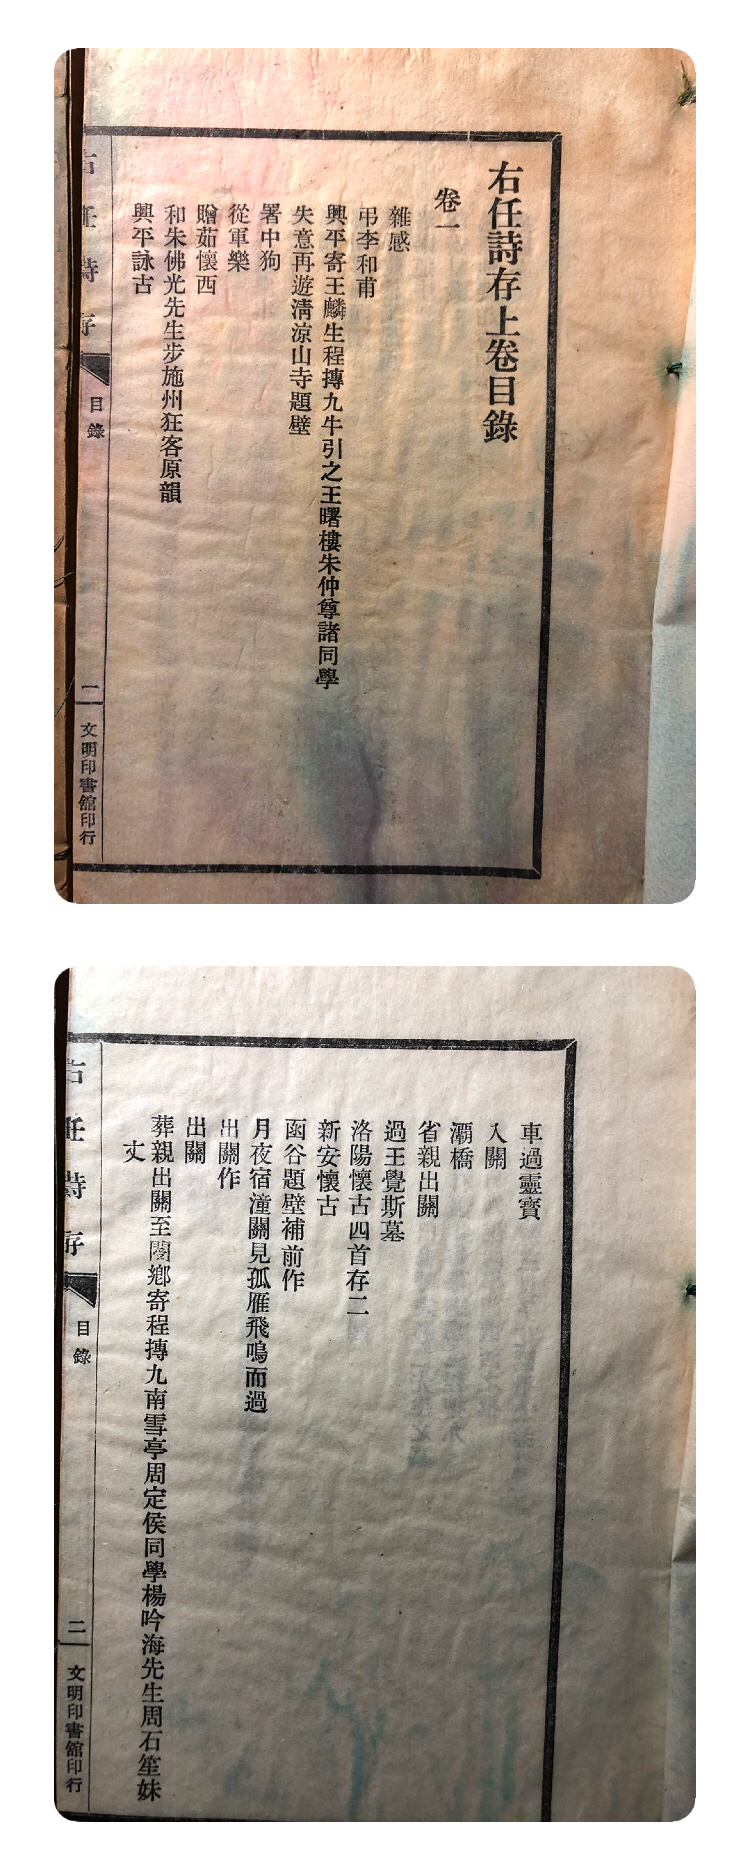 右任詩存上卷目錄
卷一
雜感
弔李和甫
興平寄王麟生程摶九牛引之王曙樓朱仲尊諸同學
失意再遊清涼山寺題壁
署中狗
從軍樂
贈茹懷西
和朱佛光先生步施州狂客原韻
興平詠古
右任詩存
目錄
一
文明印書館印行
車過靈寶
入關
灞橋
省親出關
過王覺斯墓
洛陽懷古四首存二
新安懷古
函谷題壁補前作
月夜宿潼關見孤雁飛鳴而過
出關作
出關
葬親出關至閿鄉寄程摶九南雪亭周定侯同學楊吟海先生周石笙妹
丈
右任詩存
目錄
二
文明印書館印行